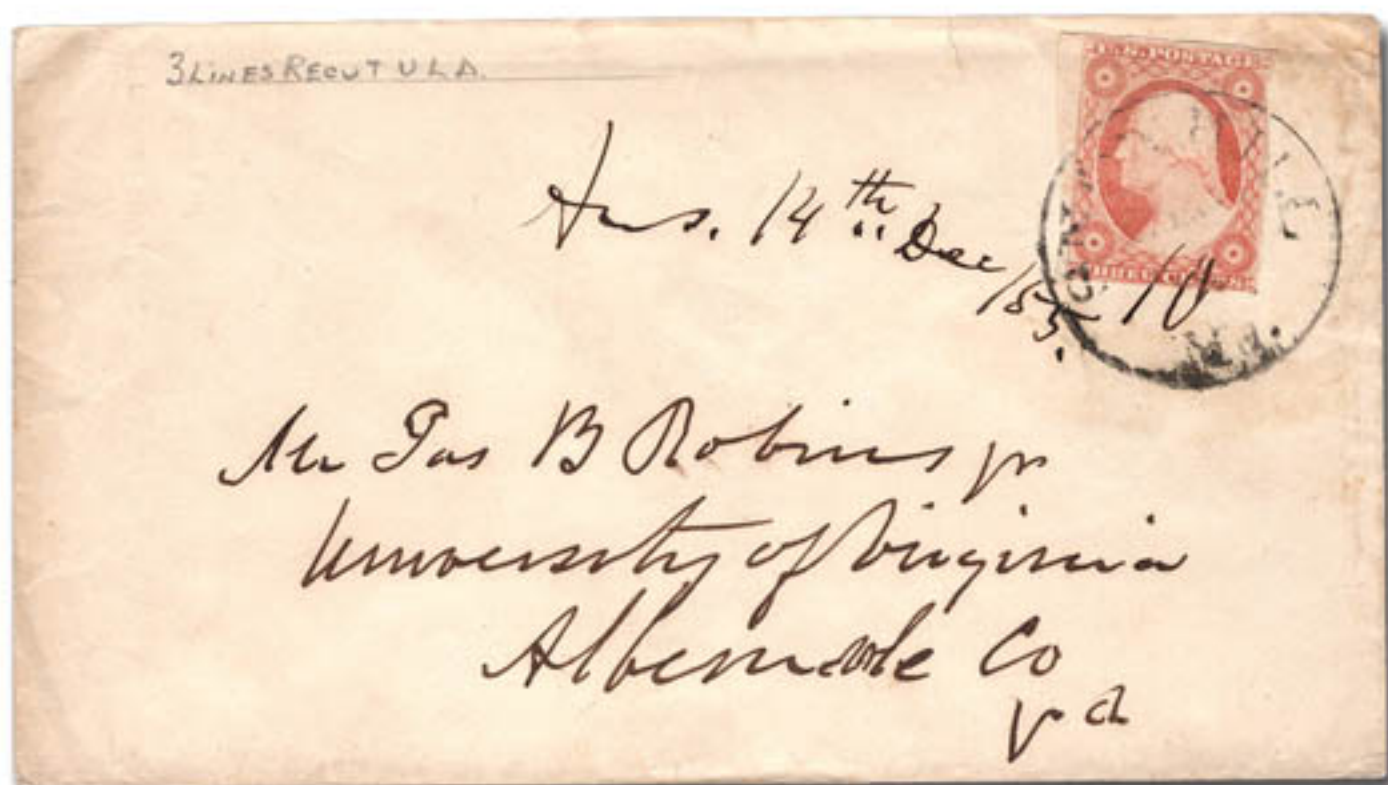 3 LINES RECUT U L A.
U.S. POSTAGE
THREE CENTS
Ans. 14th Dec
/55.
10
Va.
Mr Jas B Robins jr
University of Virginia
Albemarle Co
Va